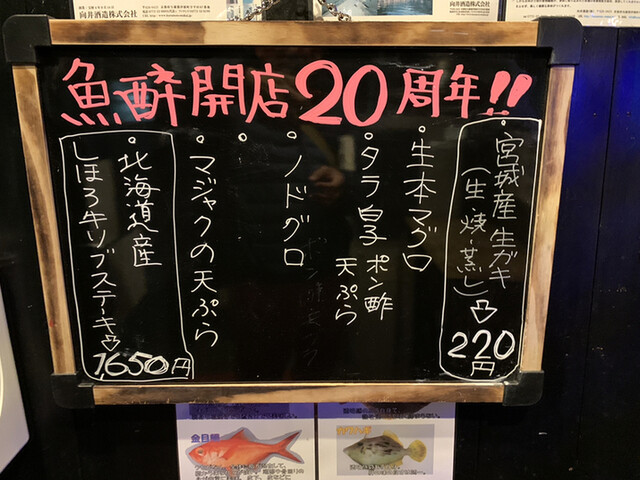 向井酒造株式会社
魚酔開店20周年!!
・宮城産 生ガキ
(生・焼・蒸し)⇨220円
・生本マグロ
・タラ白子 ポン酢
天ぷら
・ノドグロ
・
・マジャクの天ぷら
・北海道産
しほろ牛リブステーキ⇨1,650円
金目鯛